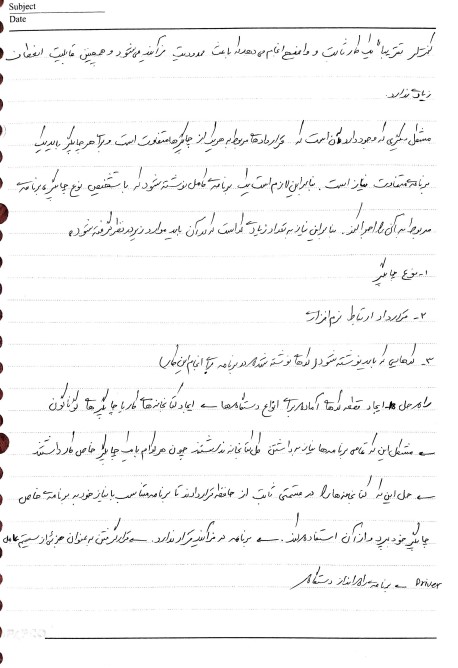 Subject
Date
کنترلر تقریباً یک کار ثابت و واضح انجام می‌دهد که باعث محدودیت در فرآیند می‌شود و همچنین قابلیت انعطاف
زیادی ندارد.
مشکل دیگری که وجود دارد آن است که قراردادها مربوط به هر یک از چاپگرها متفاوت است و برای هر چاپگر باید یک
برنامه متفاوت نیاز است. بنابراین لازم است یک برنامه کامل نوشته شود که با تشخیص نوع چاپگر، برنامه
مربوط به آن را اجرا کند. بنابراین نیاز به تعداد زیادی کد است که در آن باید موارد زیر در نظر گرفته شود:
۱- نوع چاپگر
۲- قرارداد ارتباط نرم افزاری
۳- کدهایی که باید نوشته شود (کدها نوشته شده در برنامه برای انجام این کار)
راه حل ایجاد قطعه کدها آماده برای انواع دستگاهها ← ایجاد کتابخانه‌ها کار با چاپگرها گوناگون
← مشکل این که تمامی برنامه‌ها نیاز به داشتن کل کتابخانه نداشتند چون هر کدام با یک چاپگر خاص کار داشتند
← حل این که کتابخانه‌ها را در قسمتی ثابت از حافظه قرار دادند تا برنامه متناسب با نیاز خود به برنامه خاص
چاپگر خود برود و از آن استفاده کند. ← برنامه در فرآیند قرار ندارد. ← قرار گرفتن به عنوان جزئی از سیستم عامل
Driver ← برنامه راه انداز دستگاه